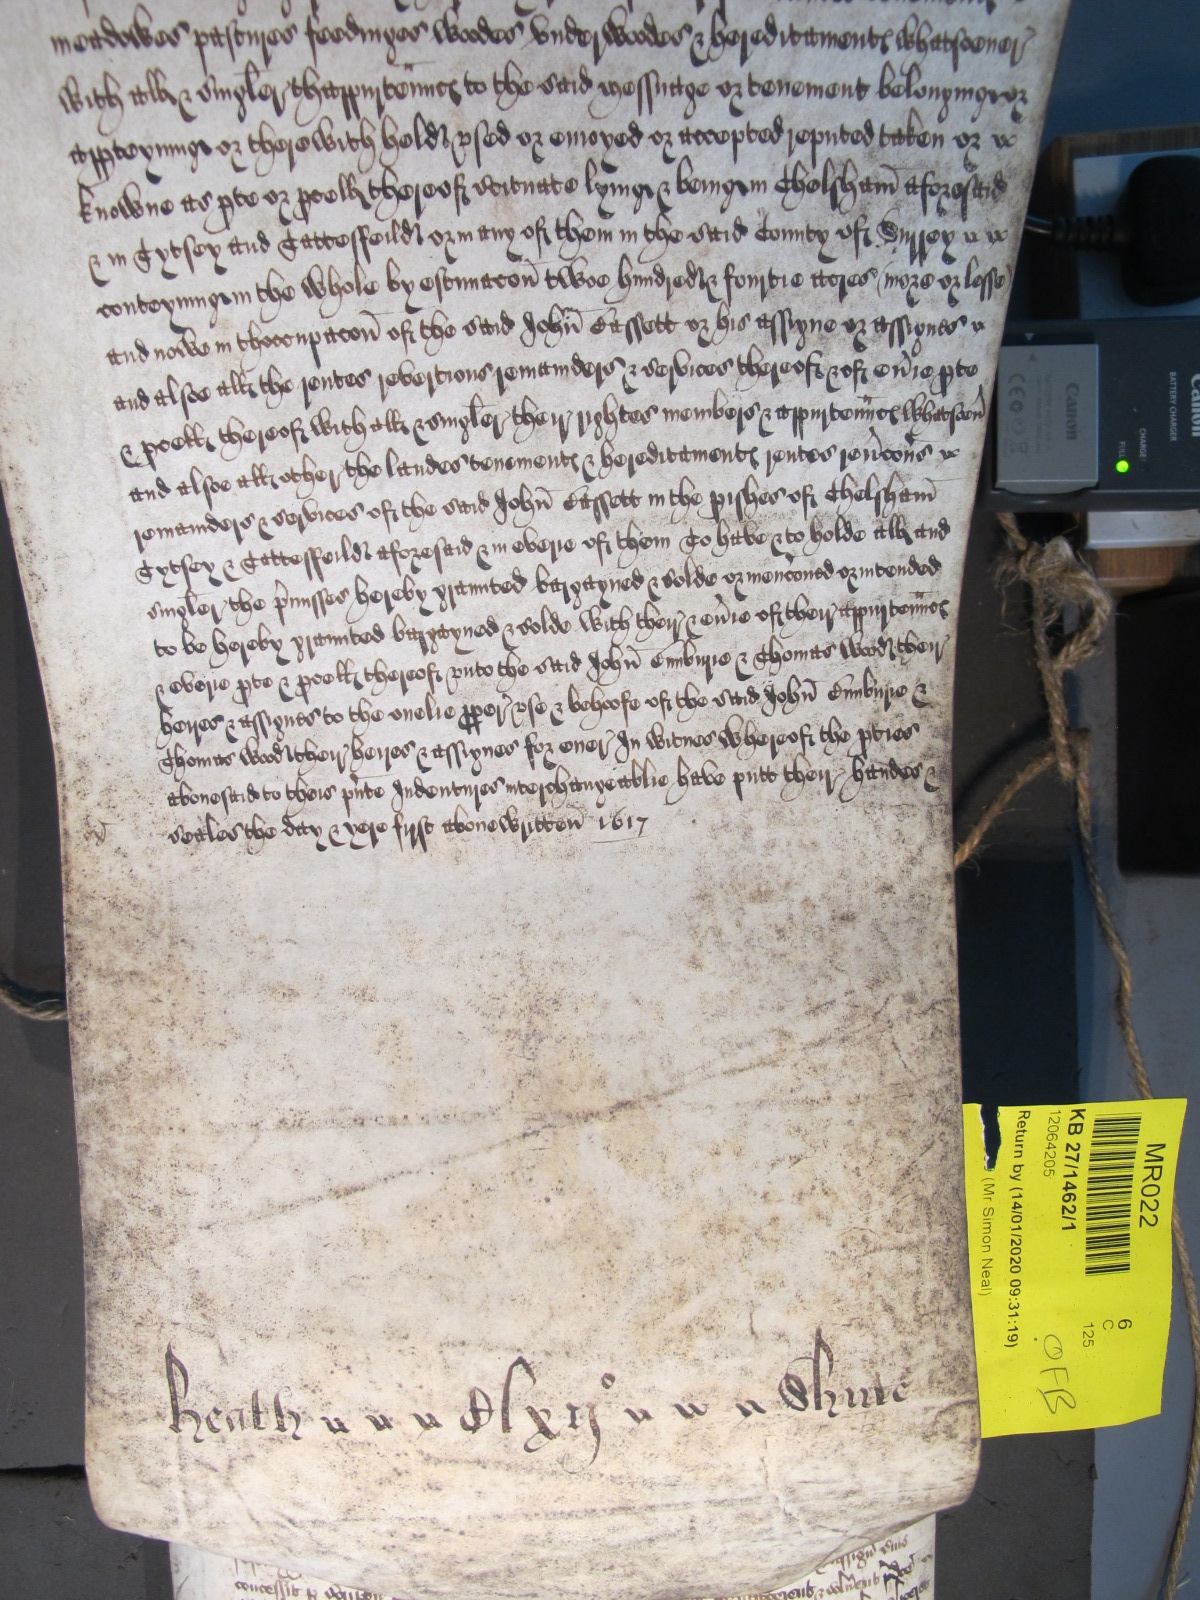 meadowes pastures feedinges Woodes Underwoodes & hereditamentes Whatsoever
With all & singler thappurtennces to the said messuage or tenement belonginge or
apperteyninge or thereWith held used or enioyed or accepted reputed taken or
knowne as pte or pcell thereof scituate lyinge & beinge in Chelsham aforesaid
& in Tytsey and Tattesfeild or in any of them in the said County of Surrey
conteyninge in the Whole by estimacon twoe hundred & fourtie acres (more or lesse)
and nowe in thoccupacon of the said John Cassett or his assigne or assignes
and alsoe all the rentes revertions remainders & services thereof & of everie pte
& pcell thereof With all & singler their rightes members & appurtennces Whatsoever
and alsoe all other the landes tenementes & hereditamentes rentes revercons
remainders & services of the said John Cassett in the pishes of Chelsham
Tytsey & Tattesfeild aforesaid & in everie of them To have & to holde all and
singler the pmisses hereby graunted bargayned & solde or menconed or intended
to be hereby graunted bargayned & solde With their & everie of their appurtennces
& everie pte & pcell thereof unto the said John Emburie & Thomas Wood their
heires & assignes to the onelie pper use & behoofe of the said John Emburie &
Thomas Wood their heires & assignes for ever In Witnes Whereof the pties
abovesaid to theis pnte Indentures interchangeablie have putt their handes &
seales the day & yere first above Written 1617
Heath Dlxij° Shute
MR022
KB 27/1462/1
12064205
Return by (14/01/2020 09:31:19)
(Mr Simon Neal)
6
C
125
OFB
Canon
Canon
BATTERY CHARGER
CHARGE/
FULL
concessit p